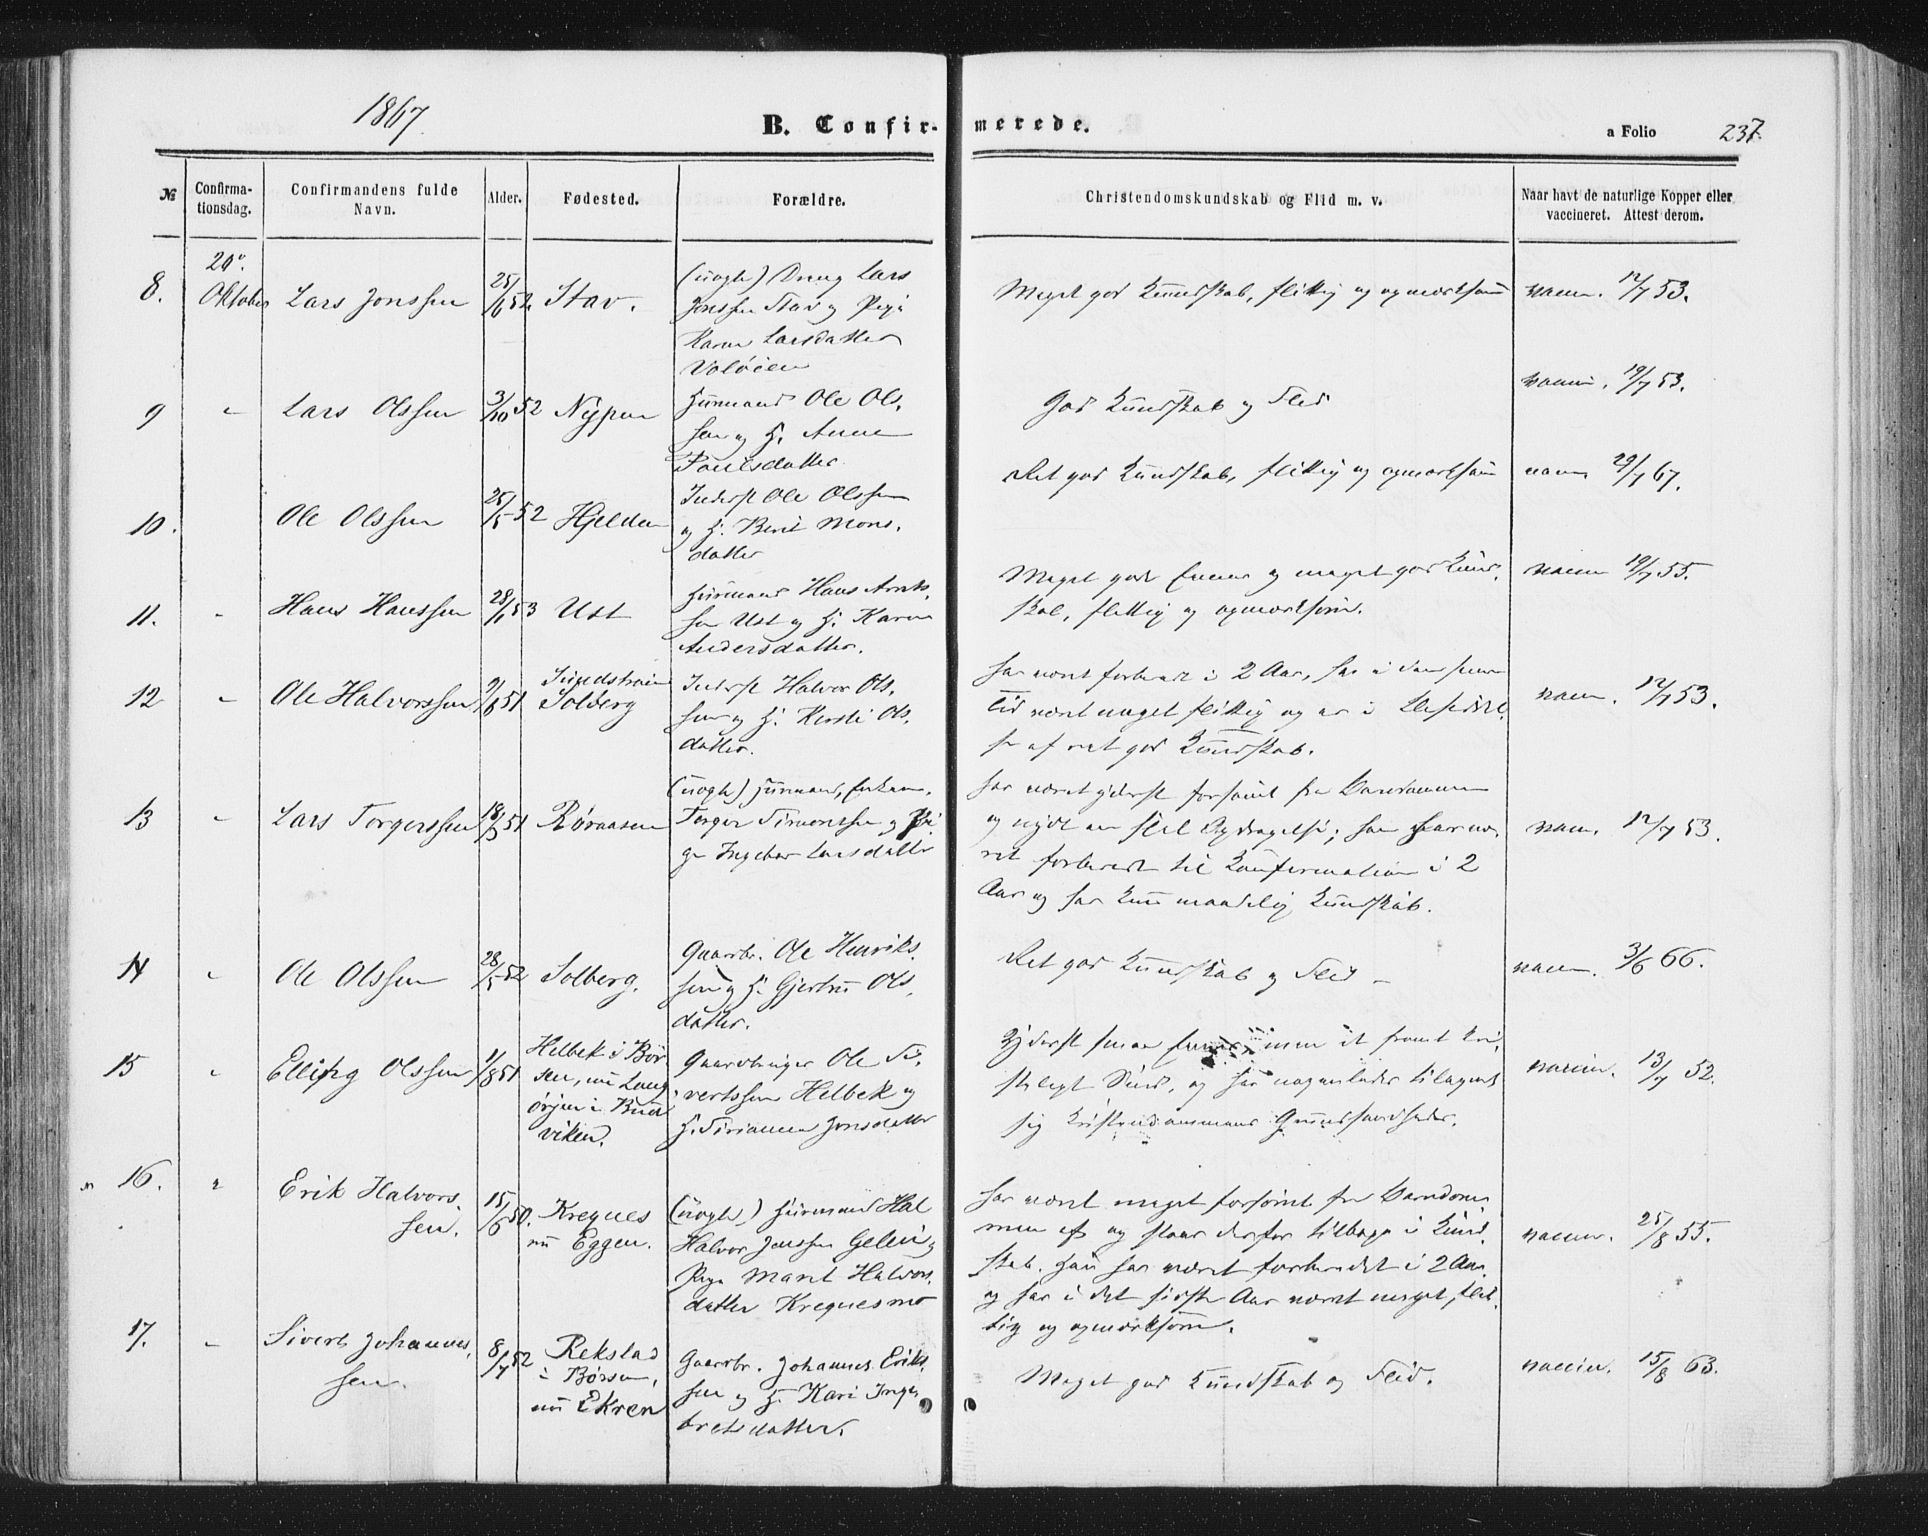 1867.
B. Confir-merede.
a Folio 237
№
Confirma-
tionsdag.
Confirmandens fulde
Navn.
Alder.
Fødested.
Forældre.
Christendomskundskab og Flid m. v.
Naar havt de naturlige Kopper eller
vaccineret. Attest derom.
8.
20de
Oktober
Lars Jonssen
25/6 52
Stav.
(uægte) Dreng Lars
Jonssen Stav og Pige
Karen Larsdatter
Voløien
Meget god Kundskab, flittig og opmærksom
vaccin. 12/7 53.
9
"
Lars Olssen
3/10 52
Nypan
Huusmand Ole Ols-
sen og H. Anne
Paulsdatter
God Kundskab og Flid
vaccin. 19/7 53.
10.
Ole Olssen
25/5 52
Hjelden
Inderst Ole Olssen
og H. Berit Mons-
datter
Ret god Kundskab, flittig og opmærksom
vaccin 29/7 67.
11.
"
Hans Hanssen
28/1 53
Ust
Huusmand Hans Arnts-
sen Ust og H. Karen
Andersdatter.
Meget gode Evner og meget god Kund-
skab, flittig og opmærksom.
vaccin 19/7 55.
12
"
Ole Halvorssen
9/8 51
Solberg
Inderst Halvor Ols-
sen og H. Kirsti Ols-
datter.
har været forberedt i 2 Aar, har i den senere
Tid været meget flittig og er i
af ret god Kundskab.
vaccin. 12/7 53.
13
"
Lars Torgerssen
18/3 51
Røraasen
(uægte) Huusmand, Enkem.
Torger Simonssen og Pi-
ge Ingebor Larsdatter
har været yderst forsømt fra Barndommen
og nydt en slet Opdragelse; han har væ-
ret forberedt til Konfirmation i 2
Aar og har kun maadelig Kundskab.
vaccin. 12/7 53.
14
"
Ole Olssen
28/5 52
Solberg.
Gaardbr. Ole Henriks-
sen og H. Gjertru Ols-
datter.
Ret god Kundskab og Flid –
vaccin. 3/6 66.
15
"
Elling Olssen
1/8 51
Helbek i Bør-
sen, nu Lang-
ørjen i Bud-
viken.
Gaardbruger Ole Si-
vertssen Helbek og
H. Sirianna Jonsdatter
Yderst smaa Evner, men et fromt kri-
steligt Sind, og har nogenlunde tilegnet
sig Kristendommens Grundsandheder.
vaccin. 13/7 52.
16.
"
Erik Halvors-
sen.
15/6 50.
Kregnes
nu Eggen.
(uægte) Huusmand Hal
Halvor Jenssen Gelein og
Pige Marit Halvors-
datter Kregnesmo
har været meget forsømt fra Barndom-
men af og staar derfor tilbage i Kund-
skab. Han har været forberedet i 2 Aar
og har i det sidste Aar været meget flit-
tig og opmærksom.
vaccin. 25/8 55.
17.
"
Sivert Johannes-
sen.
8/7 52
Rekstad
i Børsen,
nu Ekren
Gaardbr. Johannes Eriks-
sen og H. Kari Inge-
bretsdatter.
Meget god Kundskab og Flid.
vaccin. 15/8 63.